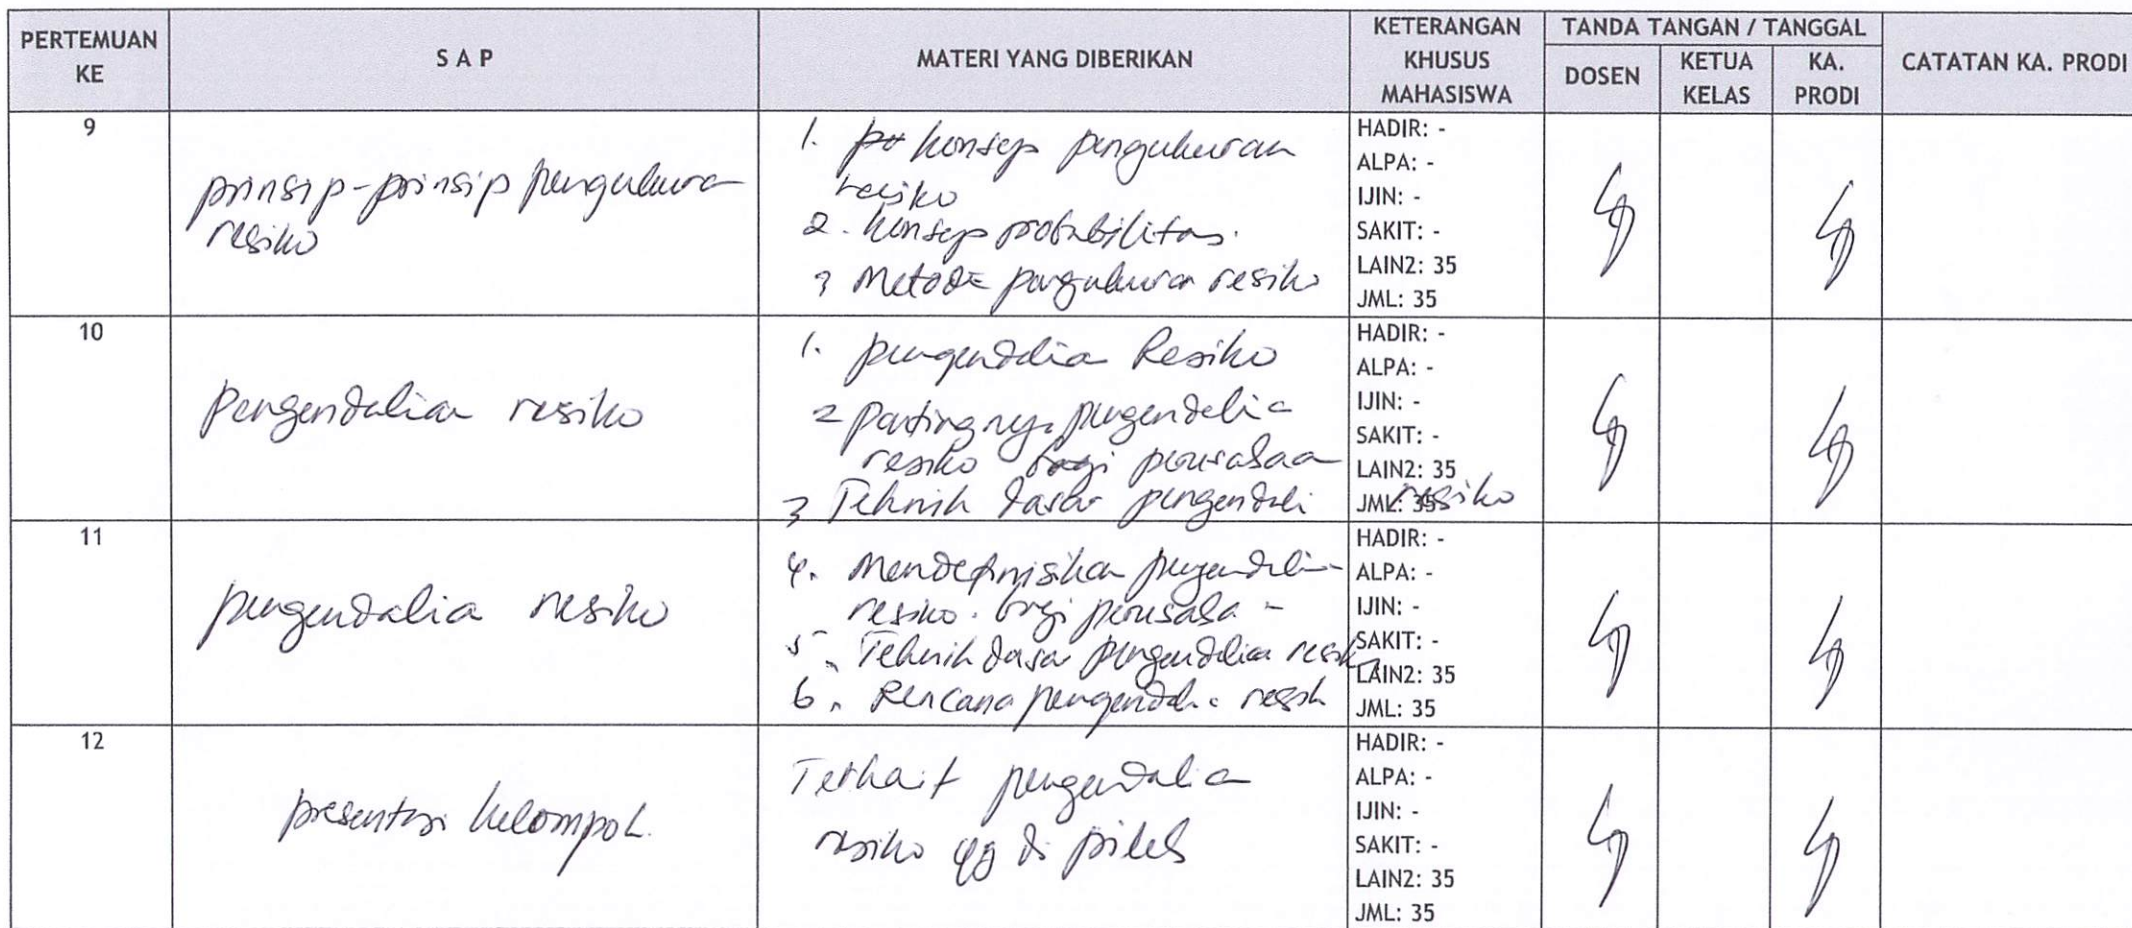 PERTEMUAN KE
S A P
MATERI YANG DIBERIKAN
KETERANGAN KHUSUS MAHASISWA
TANDA TANGAN / TANGGAL
DOSEN
KETUA KELAS
KA. PRODI
CATATAN KA. PRODI
9
prinsip-prinsip pengukuran
resiko
1. konsep pengukuran
resiko
2. konsep probabilitas.
3 Metode pengukuran resiko
HADIR: -
ALPA: -
IJIN: -
SAKIT: -
LAIN2: 35
JML: 35
10
Pengendalian resiko
1. pengendalia Resiko
2 pentingnya pengendalia
resiko bagi perusahaan
3 Tehnik dasar pengendali resiko
HADIR: -
ALPA: -
IJIN: -
SAKIT: -
LAIN2: 35
JML: 35
11
pengendalia resiko
4. Mendefinisikan pengendalian
resiko. bagi perusaha -
5. Tehnik dasar pengendalian resiko
6. Rencana pengendalia resiko
HADIR: -
ALPA: -
IJIN: -
SAKIT: -
LAIN2: 35
JML: 35
12
presentasi kelompok.
Terkait pengendalian
resiko yg di pilih
HADIR: -
ALPA: -
IJIN: -
SAKIT: -
LAIN2: 35
JML: 35